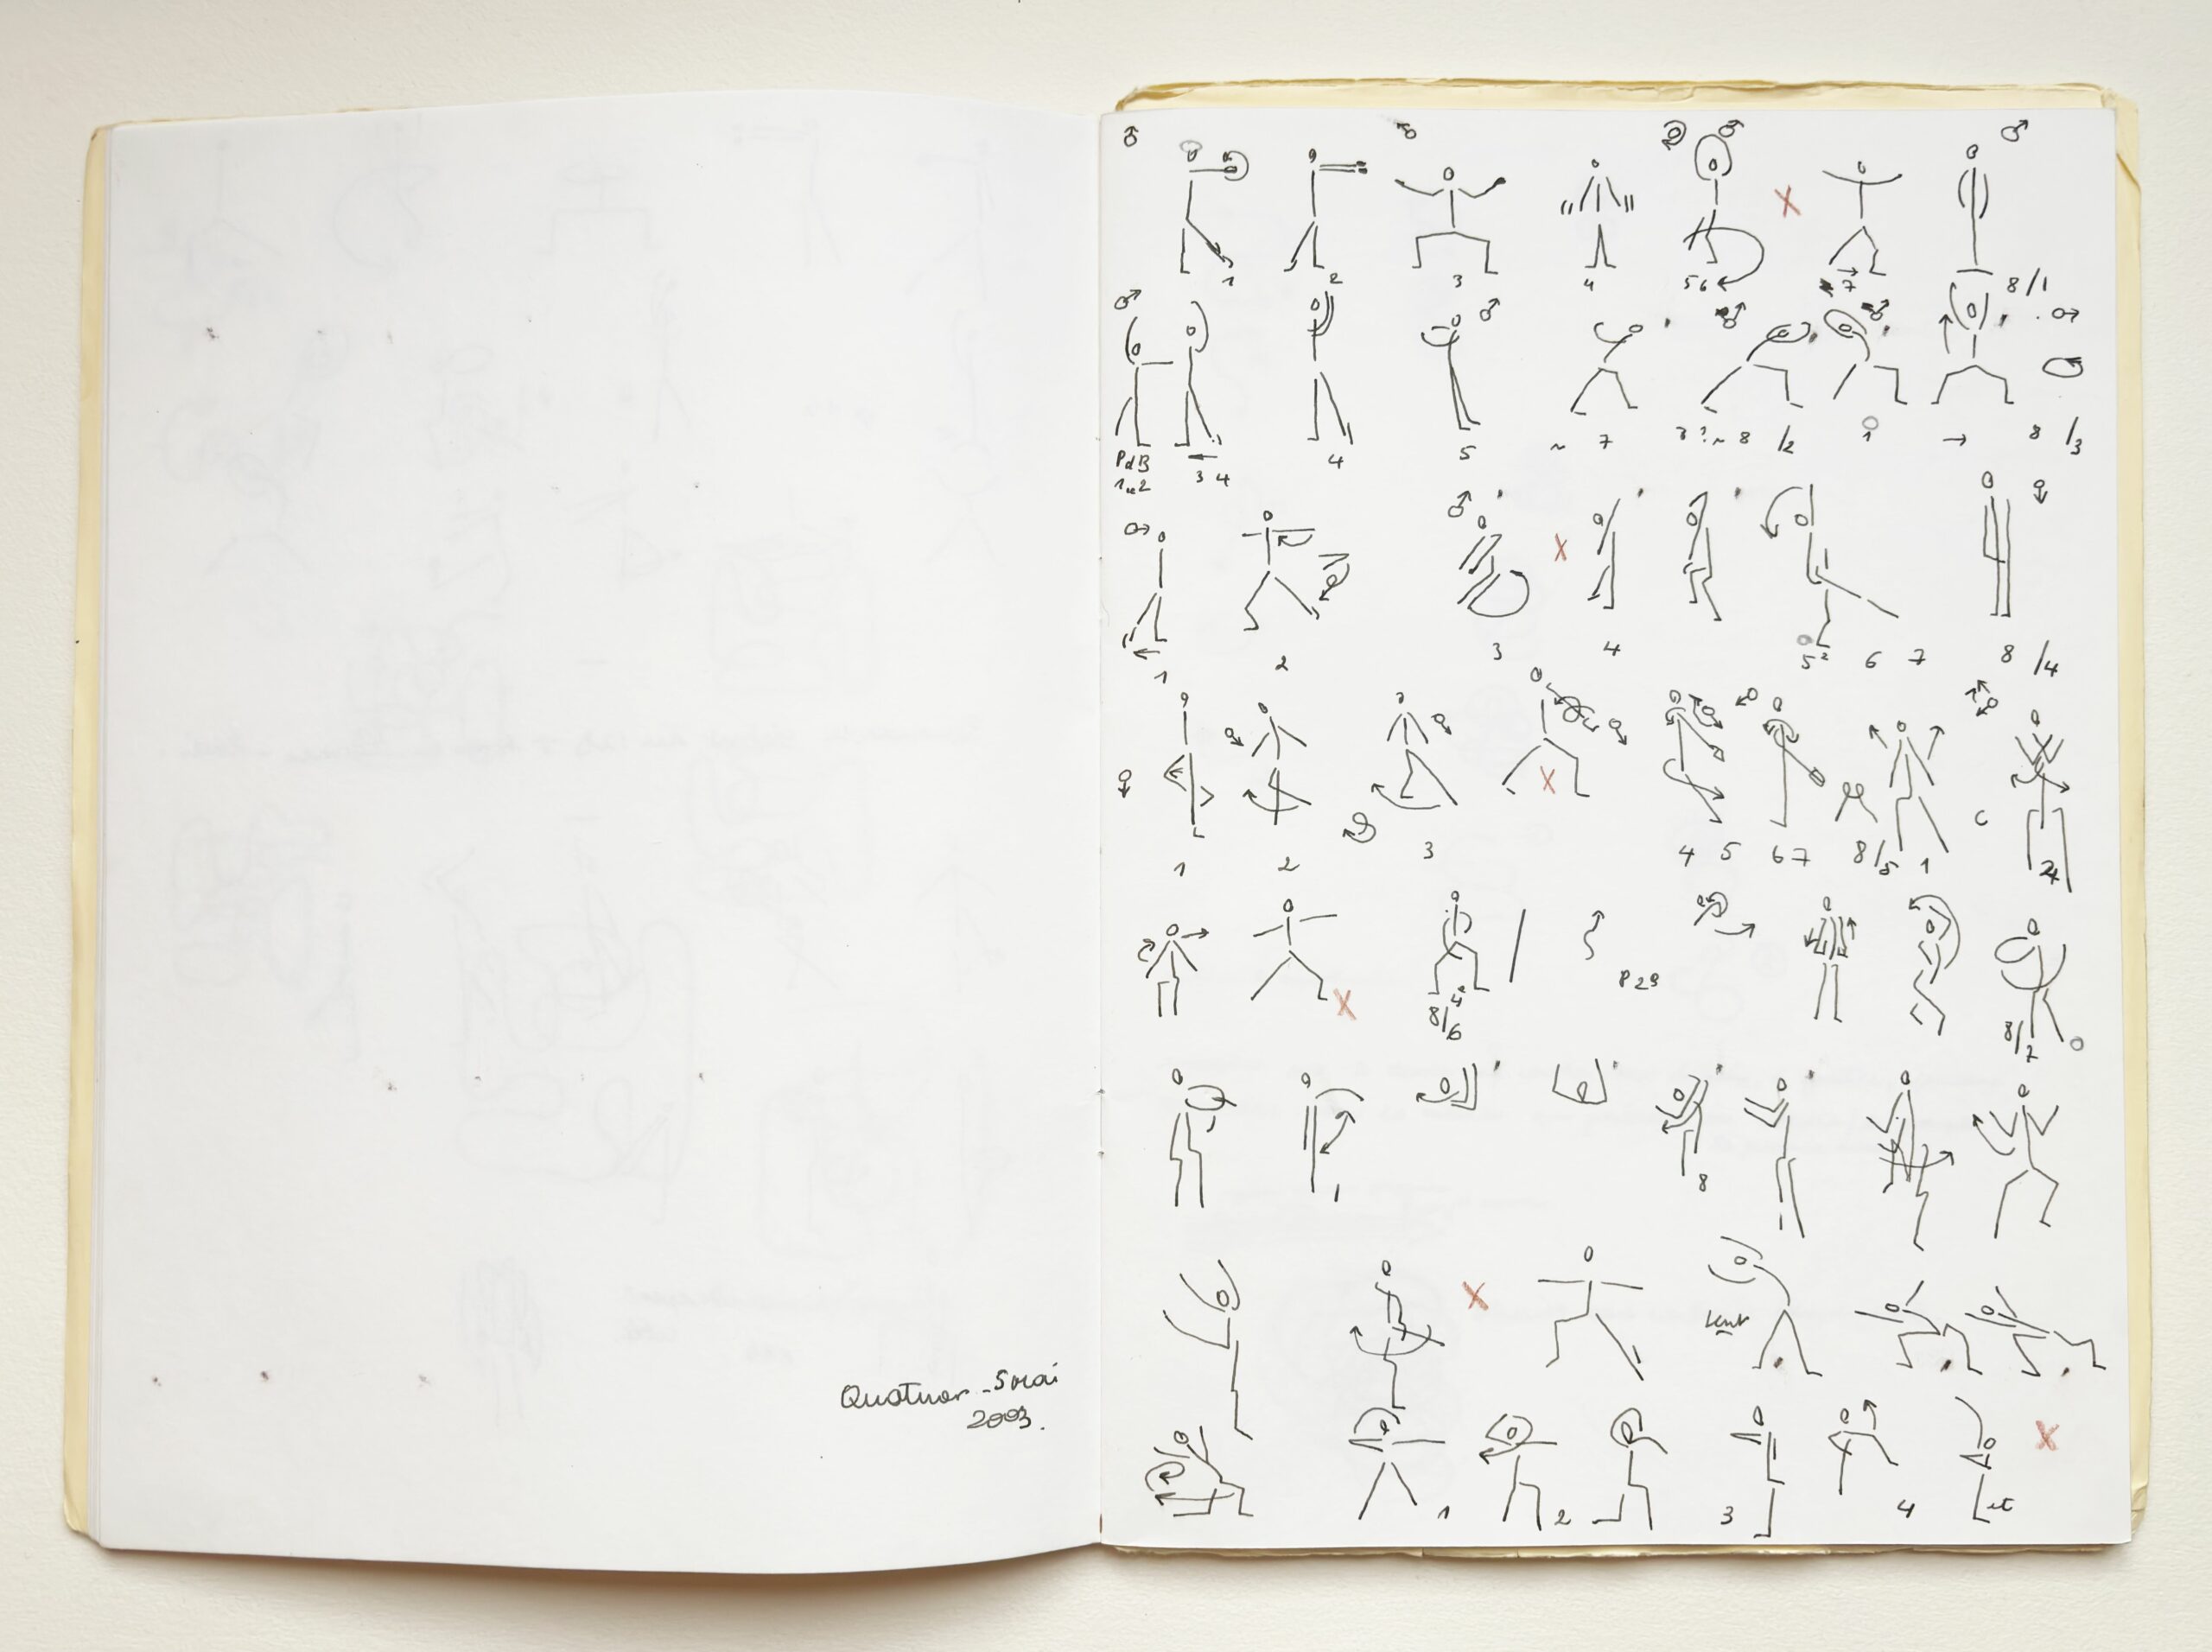 Quatuor - Sraï
2003.
1 2 3 4 5 6 7 8/1
PdB
1 et 2 3 4 4 5 ~ 7 3 ? ~ 8 /2 1 → 8 /3
1 2 3 4 5² 6 7 8 /4
1 2 3 4 5 6 7 8/5 1 2
8/6 4 P 29 8/7
1 8
lent
1 2 3 4 et